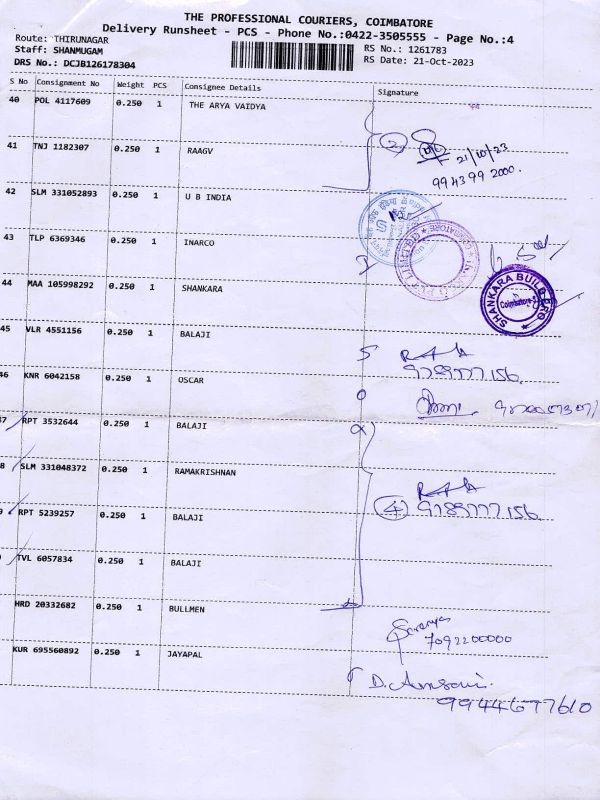 THE PROFESSIONAL COURIERS, COIMBATORE
Delivery Runsheet - PCS - Phone No.:0422-3505555 - Page No.:4
Route: THIRUNAGAR
Staff: SHANMUGAM
DRS No.: DCJB126178304
RS No.: 1261783
RS Date: 21-Oct-2023
S No Consignment No Weight PCS Consignee Details Signature
40 POL 4117609 0.250 1 THE ARYA VAIDYA
41 TNJ 1182307 0.250 1 RAAGV
2
21/10/23
994399 2000.
42 SLM 331052893 0.250 1 U B INDIA
43 TLP 6369346 0.250 1 INARCO
44 MAA 105998292 0.250 1 SHANKARA
SHANKARA BUILDPRO
Coimbatore
45 VLR 4551156 0.250 1 BALAJI
9789777156
46 KNR 6042158 0.250 1 OSCAR
RPT 3532644 0.250 1 BALAJI
SLM 331048372 0.250 1 RAMAKRISHNAN
RPT 5239257 0.250 1 BALAJI
4
9789777156
TVL 6057834 0.250 1 BALAJI
HRD 20332682 0.250 1 BULLMEN
Saranya
7092200000
KUR 695560892 0.250 1 JAYAPAL
9944677610